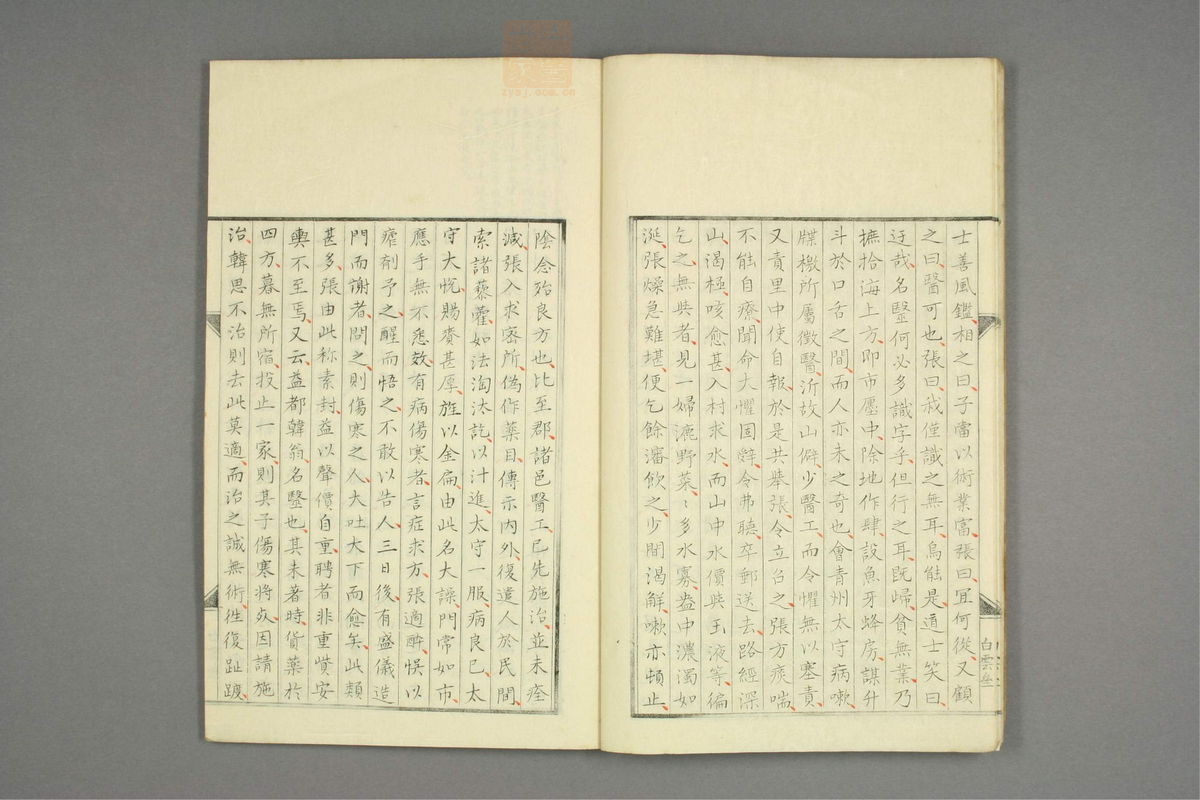 士善風鑑相之曰子當以術業富張曰宜何從又顧
之曰醫可也張曰我僅識之無耳烏能是道士笑曰
迂哉名醫何必多識字乎但行之耳既歸貧無業乃
摭拾海上方即市廛中除地作肆設魚牙蜂房謀升
斗於口舌之間而人亦未之奇也會青州太守病嗽
牒檄所屬徵醫沂故山僻少醫工而令懼無以塞責
又責里中使自報於是共舉張令立台之張方痰喘
不能自療聞命大懼固辭令弗聽卒郵送去路經深
山渴極咳愈甚入村求水而山中水價與玉液等徧
乞之無與者見一婦漉野菜〻多水寡盎中濃濁如
涎張燥急難堪便乞餘瀋飲之少間渴解嗽亦頓止
白雲
陰念殆良方也比至郡諸邑醫工已先施治並未痊
減張入求密所偽作藥目傳示內外復遣人於民間
索諸藜藿如法淘汰訖以汁進太守一服病良已太
守大悅賜賚甚厚旌以金扁由此名大譟門常如市
應手無不悉效有病傷寒者言症求方張適醉悞以
瘧劑予之醒而悟之不敢以告人三日後有盛儀造
門而謝者問之則傷寒之人大吐大下而愈矣此類
甚多張由此称素封益以聲價自重聘者非重貲安
輿不至焉又云益都韓翁名醫也其未著時貨藥於
四方暮無所宿投止一家則其子傷寒將死因請施
治韓思不治則去此莫適而治之誠無術往復跕踱